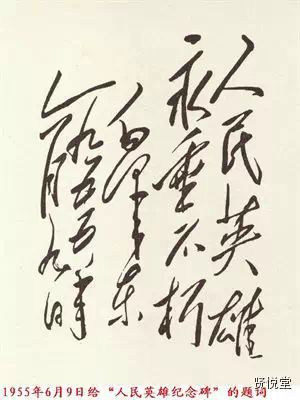 人民英雄
永垂不朽
毛泽东
一九五五年
六月九日
1955年6月9日给“人民英雄纪念碑”的题词
贤悦堂